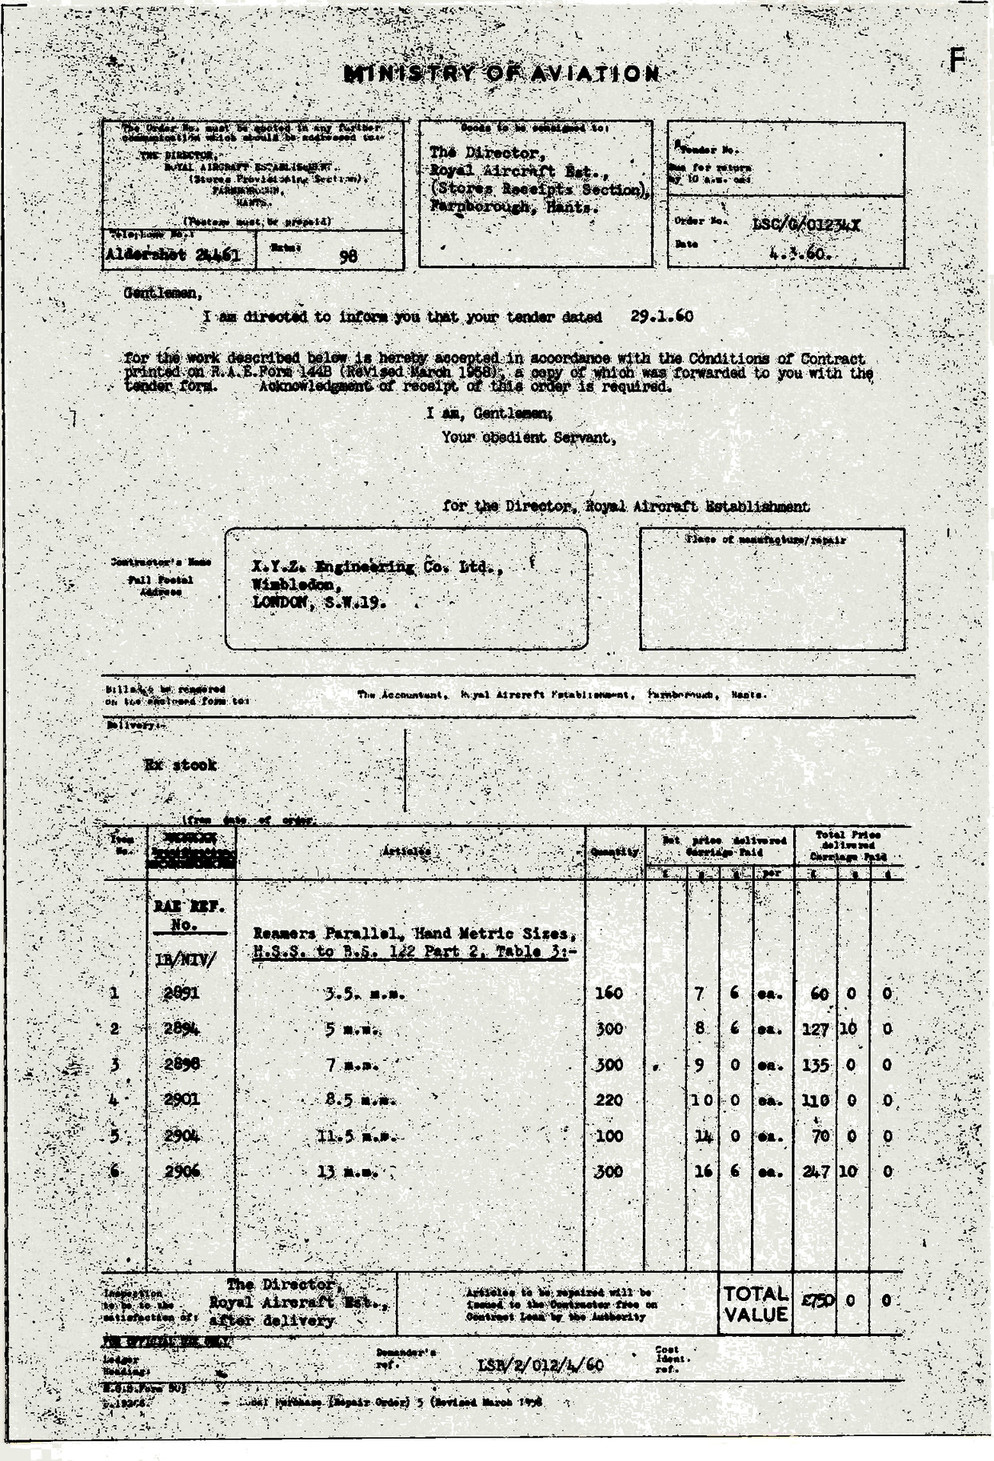 F
MINISTRY OF AVIATION
The Order No. must be quoted in any further
communication which should be addressed to:-
THE DIRECTOR,
ROYAL AIRCRAFT ESTABLISHMENT,
(Stores Provisioning Section),
FARNBOROUGH,
HANTS.
(Postage must be prepaid)
Telephone No.:
Aldershot 24461
Extn:
98
Goods to be consigned to:
The Director,
Royal Aircraft Est.,
(Stores Receipts Section),
Farnborough, Hants.
Tender No.
Due for return
by 10 a.m. on:
Order No. LSC/G/01234X
Date 4.3.60.
Gentlemen,
I am directed to inform you that your tender dated 29.1.60
for the work described below is hereby accepted in accordance with the Conditions of Contract
printed on R.A.E.Form 144B (Revised March 1958), a copy of which was forwarded to you with the
tender form. Acknowledgment of receipt of this order is required.
I am, Gentlemen,
Your obedient Servant,
for the Director, Royal Aircraft Establishment
Contractor's Name
Full Postal
Address
X.Y.Z. Engineering Co. Ltd.,
Wimbledon,
LONDON, S.W.19.
Place of manufacture/repair
Bills to be rendered
on the enclosed form to:
The Accountant, Royal Aircraft Establishment, Farnborough, Hants.
Delivery:-
Ex stock
(from date of order.
Item No. Articles Quantity Net price delivered Carriage Paid Total Price delivered Carriage Paid
£ s d per £ s d
RAE REF.
No.
Reamers Parallel, Hand Metric Sizes,
H.S.S. to B.S. 122 Part 2, Table 3:-
IB/NIV/
1 2891 3.5. m.m. 160 7 6 ea. 60 0 0
2 2894 5 m.m. 300 8 6 ea. 127 10 0
3 2898 7 m.m. 300 9 0 ea. 135 0 0
4 2901 8.5 m.m. 220 10 0 ea. 110 0 0
5 2904 11.5 m.m. 100 14 0 ea. 70 0 0
6 2906 13 m.m. 300 16 6 ea. 247 10 0
Inspection
to be to the
satisfaction of:
The Director,
Royal Aircraft Est.,
after delivery
Articles to be repaired will be
issued to the Contractor free on
Contract Loan by the Authority
TOTAL
VALUE
£750 0 0
FOR OFFICIAL USE ONLY
Ledger
Heading:
Demander's
ref.
LSR/2/012/4/60
Cost
Ident.
ref.
Local Purchase (Repair Order) 5 (Revised March 1958